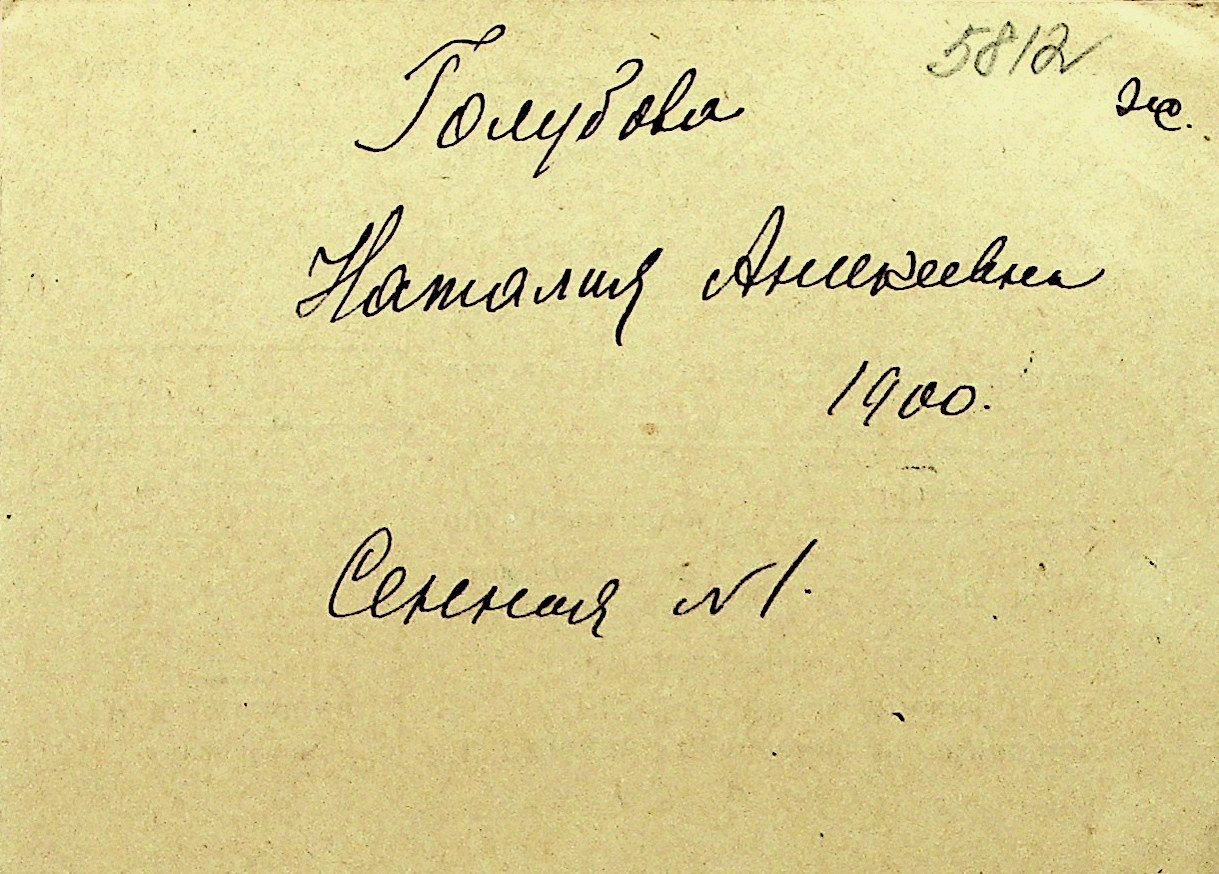 5812
ж.
Голубова
Наталия Аникеевна
1900.
Сенная №1.